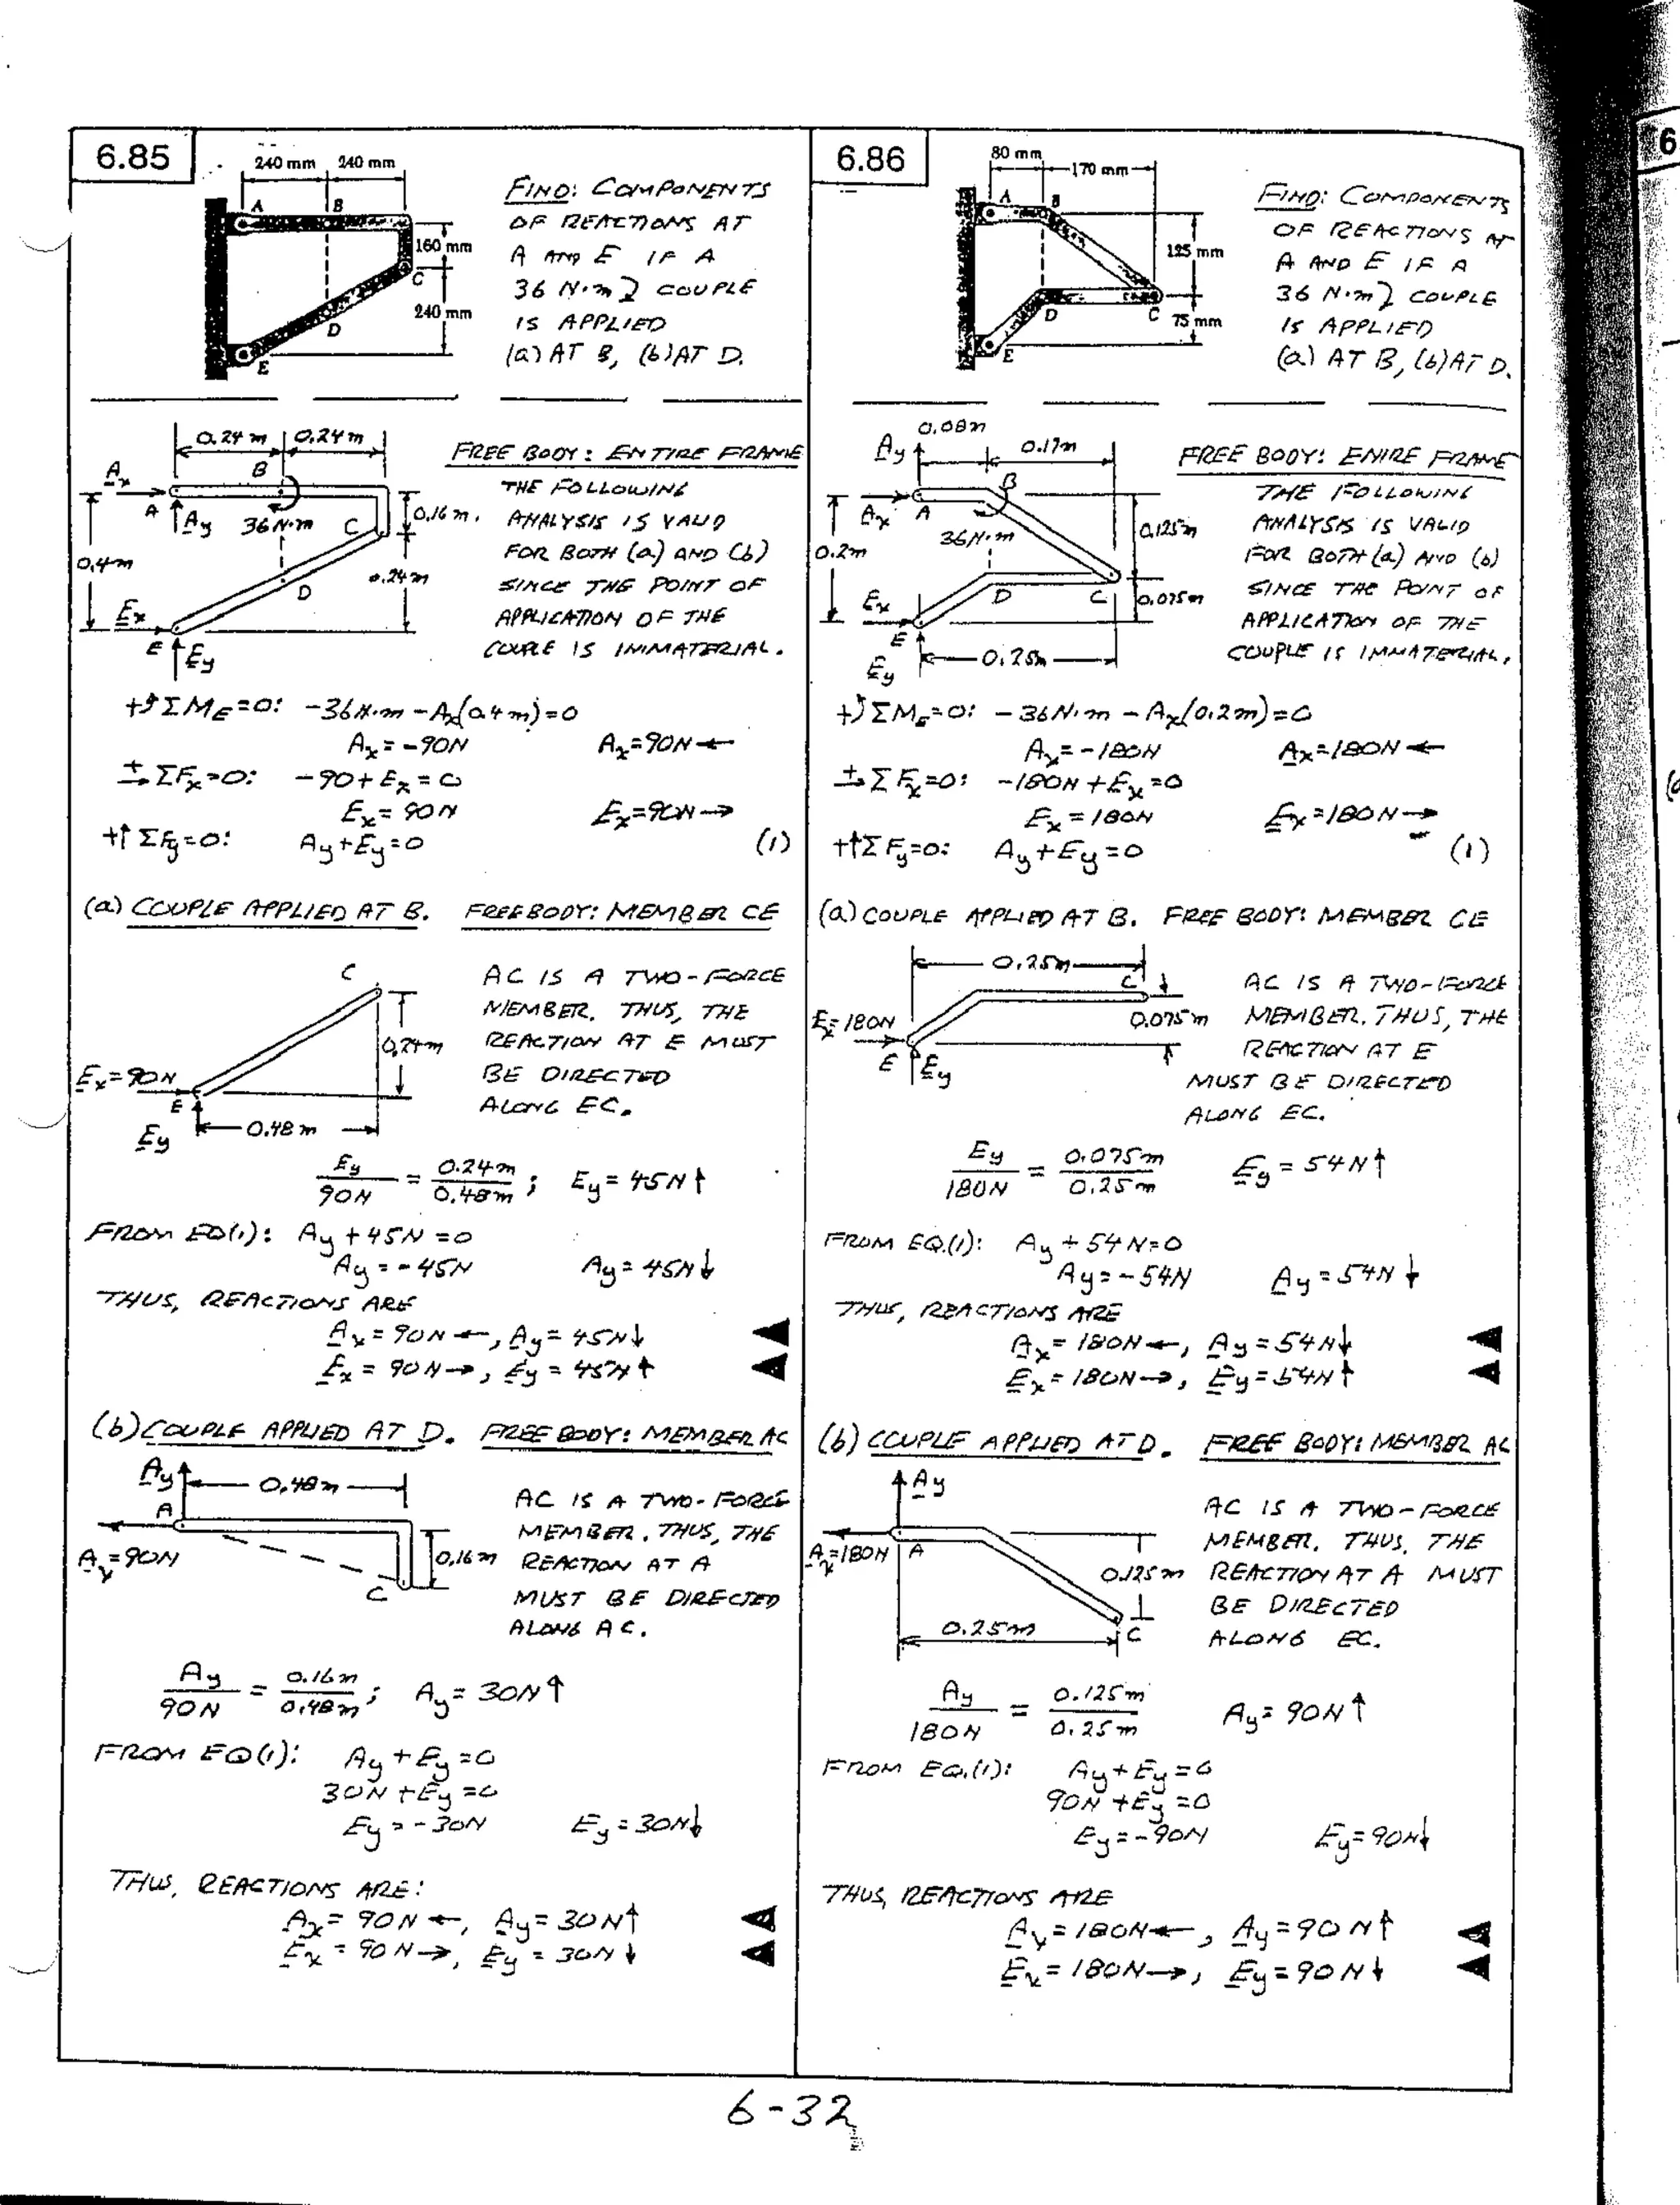 6.85
240 mm 240 mm
A B
160 mm
C
240 mm
D
E
FIND: COMPONENTS
OF REACTIONS AT
A AND E IF A
36 N·m ⤸ COUPLE
IS APPLIED
(a) AT B, (b) AT D.
0.24 m 0.24 m
B
Ax
A Ay 36 N·m C 0.16 m.
0.4 m
D 0.24 m
Ex
E Ey
FREE BODY: ENTIRE FRAME
THE FOLLOWING
ANALYSIS IS VALID
FOR BOTH (a) AND (b)
SINCE THE POINT OF
APPLICATION OF THE
COUPLE IS IMMATERIAL.
+↺ ΣME=0: -36 N·m - Ax(0.4 m)=0
Ax = -90N Ax=90N ←
+→ ΣFx=0: -90 + Ex = 0
Ex = 90 N Ex=90N →
+↑ ΣFy=0: Ay + Ey = 0 (1)
(a) COUPLE APPLIED AT B. FREE BODY: MEMBER CE
C
0.24 m
Ex=90N
E
Ey 0.48 m
AC IS A TWO-FORCE
MEMBER. THUS, THE
REACTION AT E MUST
BE DIRECTED
ALONG EC.
Ey/90N = 0.24m/0.48m ; Ey = 45N ↑
FROM EQ(1): Ay + 45N = 0
Ay = -45N Ay = 45N ↓
THUS, REACTIONS ARE
Ax = 90N ←, Ay = 45N ↓
Ex = 90N →, Ey = 45N ↑
(b) COUPLE APPLIED AT D. FREE BODY: MEMBER AC
Ay 0.48 m
A
Ax=90N 0.16 m
C
AC IS A TWO-FORCE
MEMBER. THUS, THE
REACTION AT A
MUST BE DIRECTED
ALONG AC.
Ay/90N = 0.16m/0.48m ; Ay = 30N ↑
FROM EQ(1): Ay + Ey = 0
30N + Ey = 0
Ey = -30N Ey = 30N ↓
THUS, REACTIONS ARE:
Ax = 90N ←, Ay = 30N ↑
Ex = 90N →, Ey = 30N ↓
6.86
80 mm
170 mm
A B
125 mm
D C 75 mm
E
FIND: COMPONENTS
OF REACTIONS AT
A AND E IF A
36 N·m ⤸ COUPLE
IS APPLIED
(a) AT B, (b) AT D.
0.08m
Ay 0.17m
B
Ax A 0.125m
36 N·m
0.2m
Ex D C 0.075m
E
Ey 0.25m
FREE BODY: ENIRE FRAME
THE FOLLOWING
ANALYSIS IS VALID
FOR BOTH (a) AND (b)
SINCE THE POINT OF
APPLICATION OF THE
COUPLE IS IMMATERIAL.
+↺ ΣME=0: -36 N·m - Ax(0.2m)=0
Ax = -180N Ax=180N ←
+→ ΣFx=0: -180N + Ex = 0
Ex = 180N Ex=180N →
+↑ΣFy=0: Ay + Ey = 0 (1)
(a) COUPLE APPLIED AT B. FREE BODY: MEMBER CE
0.25m
C
Ex=180N 0.075m
E Ey
AC IS A TWO-FORCE
MEMBER. THUS, THE
REACTION AT E
MUST BE DIRECTED
ALONG EC.
Ey/180N = 0.075m/0.25m Ey = 54N ↑
FROM EQ.(1): Ay + 54N = 0
Ay = -54N Ay = 54N ↓
THUS, REACTIONS ARE
Ax = 180N ←, Ay = 54N ↓
Ex = 180N →, Ey = 54N ↑
(b) COUPLE APPLIED AT D. FREE BODY: MEMBER AC
Ay
Ax=180N A
0.125m
0.25m C
AC IS A TWO-FORCE
MEMBER. THUS, THE
REACTION AT A MUST
BE DIRECTED
ALONG EC.
Ay/180N = 0.125m/0.25m Ay = 90N ↑
FROM EQ.(1): Ay + Ey = 0
90N + Ey = 0
Ey = -90N Ey = 90N ↓
THUS, REACTIONS ARE
Ax = 180N ←, Ay = 90N ↑
Ex = 180N →, Ey = 90N ↓
6-32
6